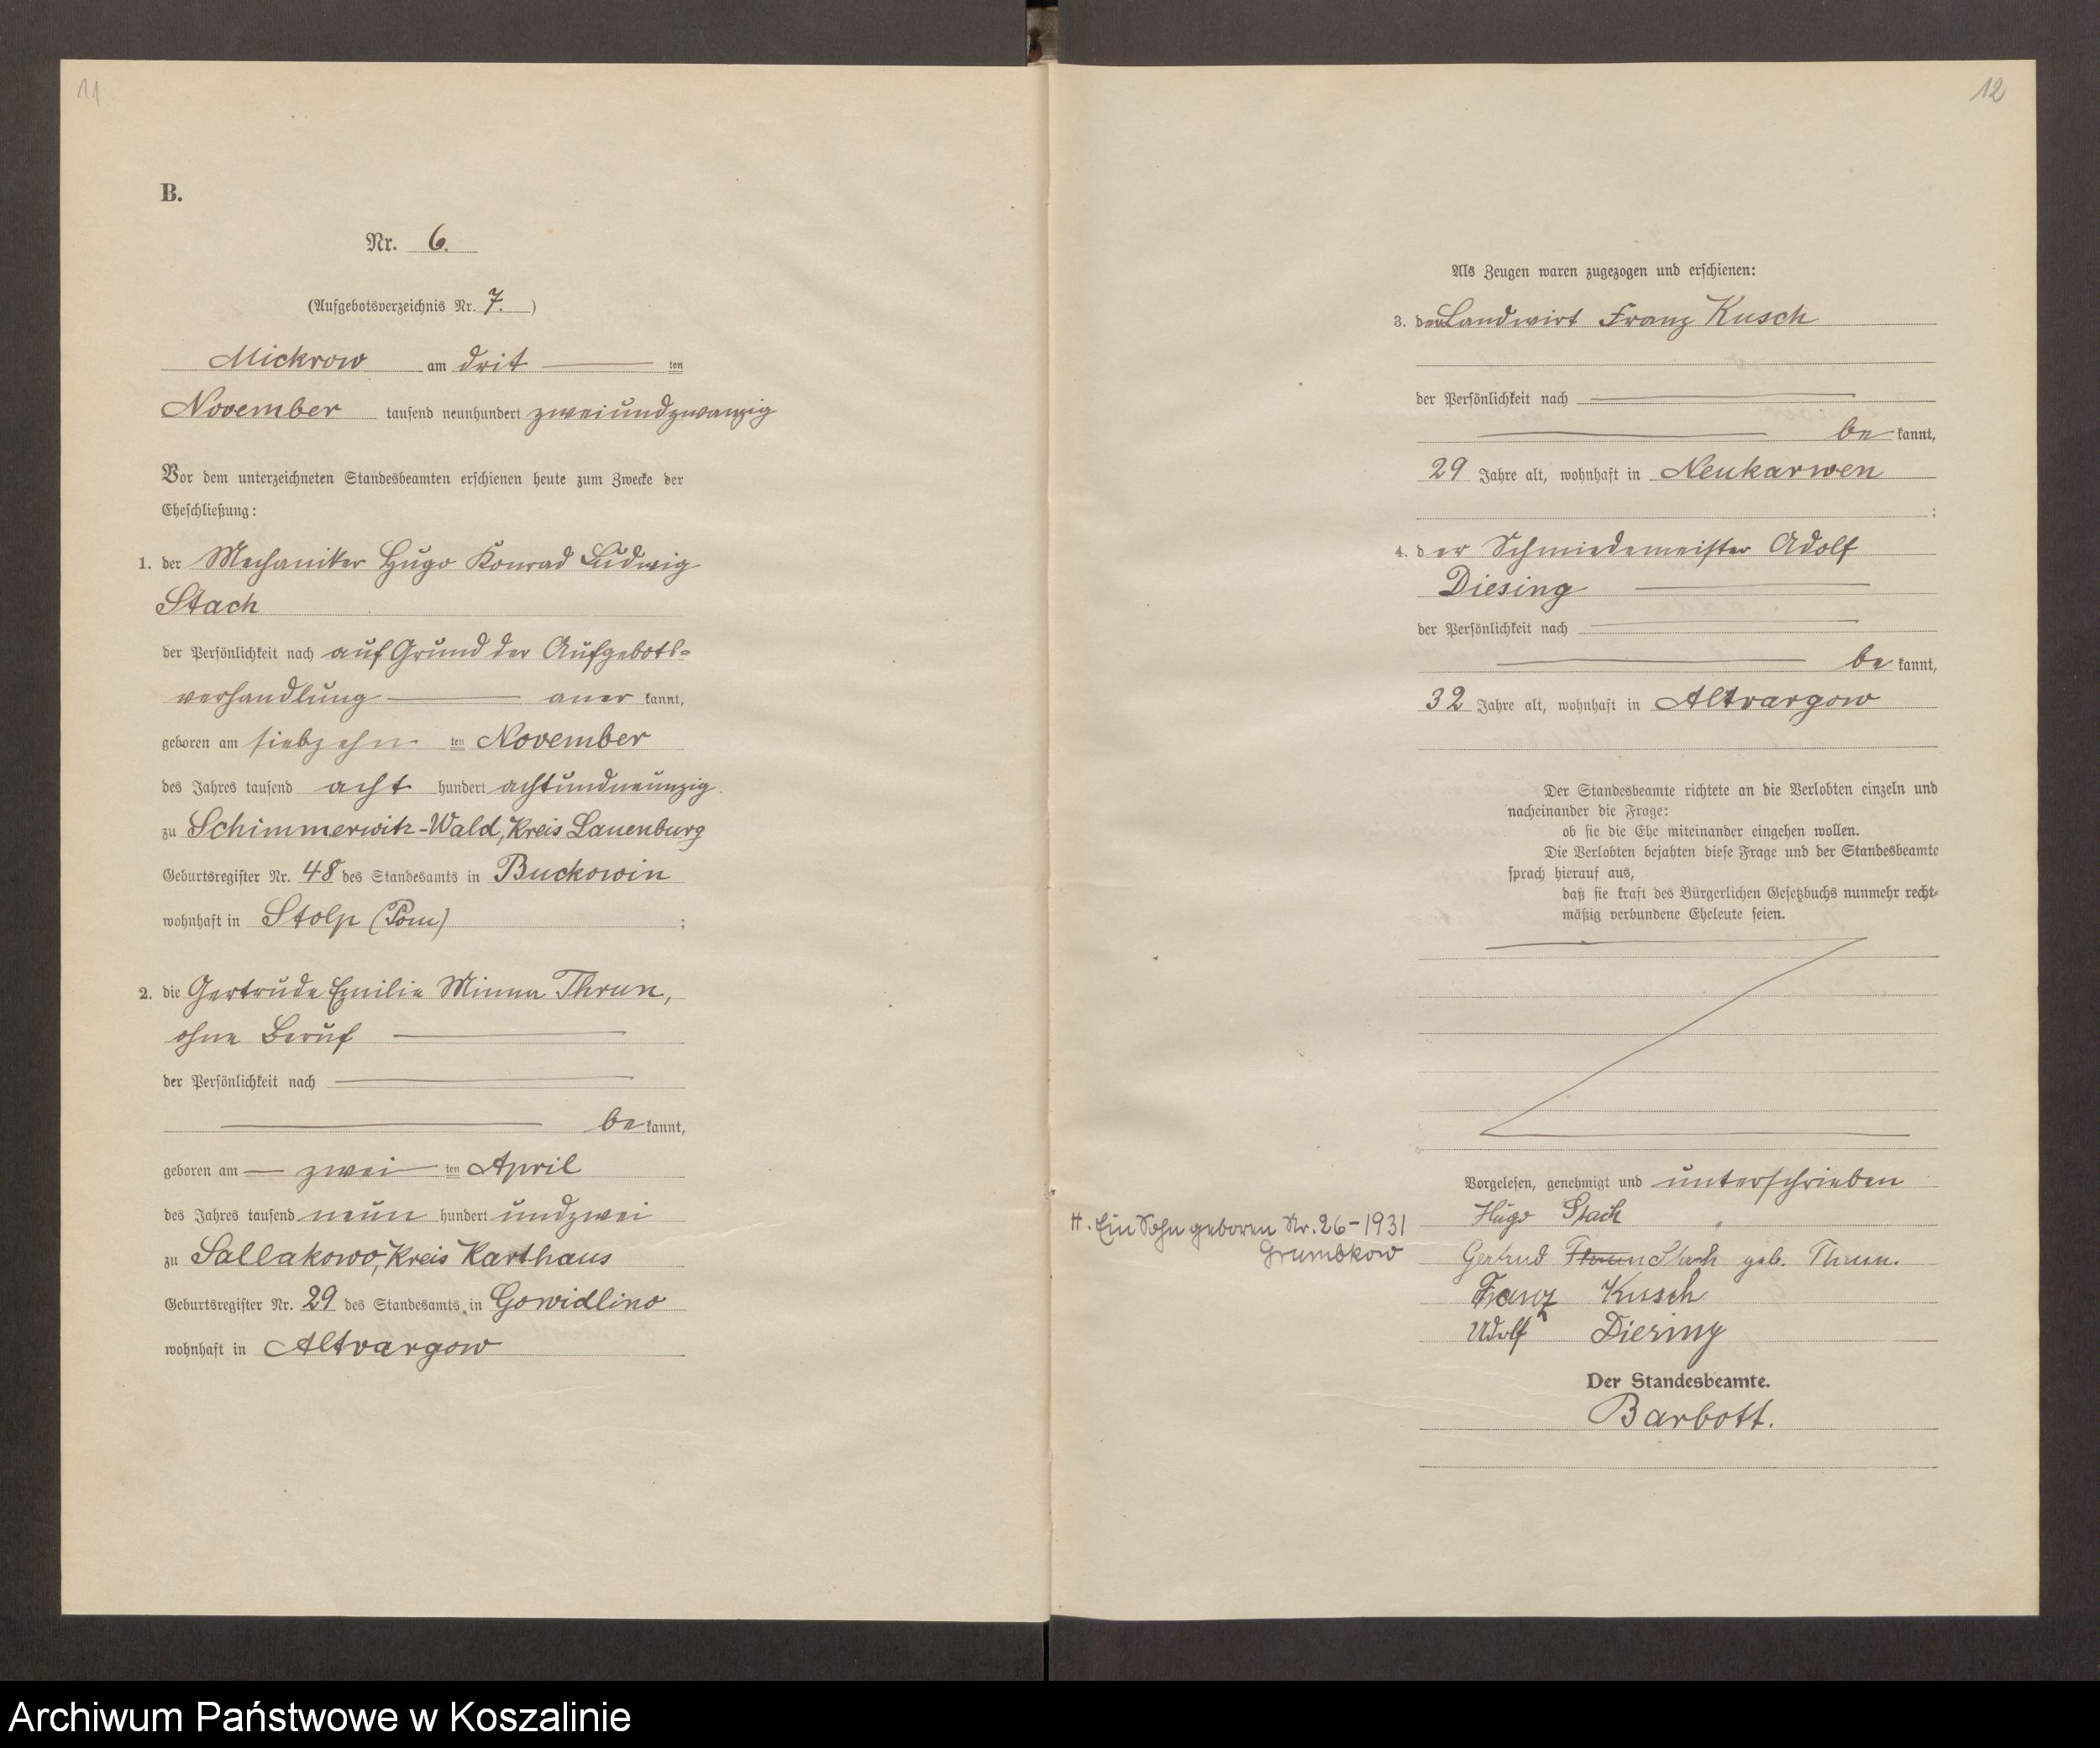 11
B.
Nr. 6.
(Aufgebotsverzeichnis Nr. 7. )
Mickrow am drit ten
November tausend neunhundert zweiundzwanzig
Vor dem unterzeichneten Standesbeamten erschienen heute zum Zwecke der
Eheschließung:
1. der Mechaniker Hugo Konrad Ludwig
Stach
der Persönlichkeit nach auf Grund der Aufgebots-
verhandlung aner kannt,
geboren am siebzehn ten November
des Jahres tausend acht hundert achtundneunzig
zu Schimmerwitz-Wald, Kreis Lauenburg
Geburtsregister Nr. 48 des Standesamts in Buckowin
wohnhaft in Stolp (Pom) ;
2. die Gertrude Emilie Minna Thrun,
ohne Beruf
der Persönlichkeit nach
be kannt,
geboren am zwei ten April
des Jahres tausend neun hundert undzwei
zu Sallakowo, Kreis Karthaus
Geburtsregister Nr. 29 des Standesamts in Gowidlino
wohnhaft in Altvargow
12
Als Zeugen waren zugezogen und erschienen:
3. der Landwirt Franz Kusch
der Persönlichkeit nach
be kannt,
29 Jahre alt, wohnhaft in Neukarwen
;
4. der Schmiedemeister Adolf
Diesing
der Persönlichkeit nach
be kannt,
32 Jahre alt, wohnhaft in Altvargow
Der Standesbeamte richtete an die Verlobten einzeln und
nacheinander die Frage:
ob sie die Ehe miteinander eingehen wollen.
Die Verlobten bejahten diese Frage und der Standesbeamte
sprach hierauf aus,
daß sie kraft des Bürgerlichen Gesetzbuchs nunmehr recht-
mäßig verbundene Eheleute seien.
Vorgelesen, genehmigt und unterschrieben
Hugo Stach
Gertrud Thrun Stach geb. Thrun.
Franz Kusch
Adolf Diesing
Der Standesbeamte.
Barbott.
H. Ein Sohn geboren Nr. 26-1931
Grumbkow
Archiwum Państwowe w Koszalinie